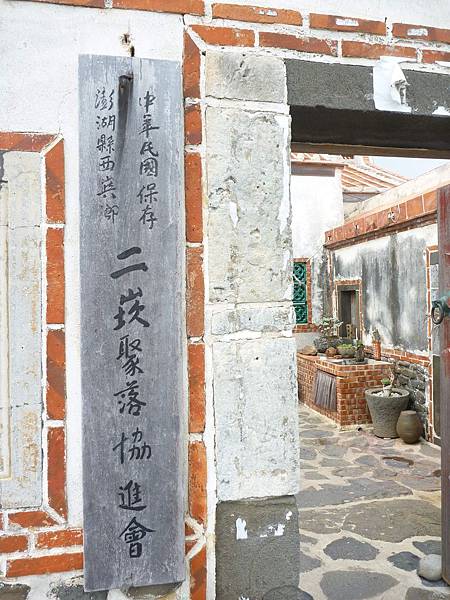 中華民國保存
澎湖縣西嶼鄉
二崁聚落協進會